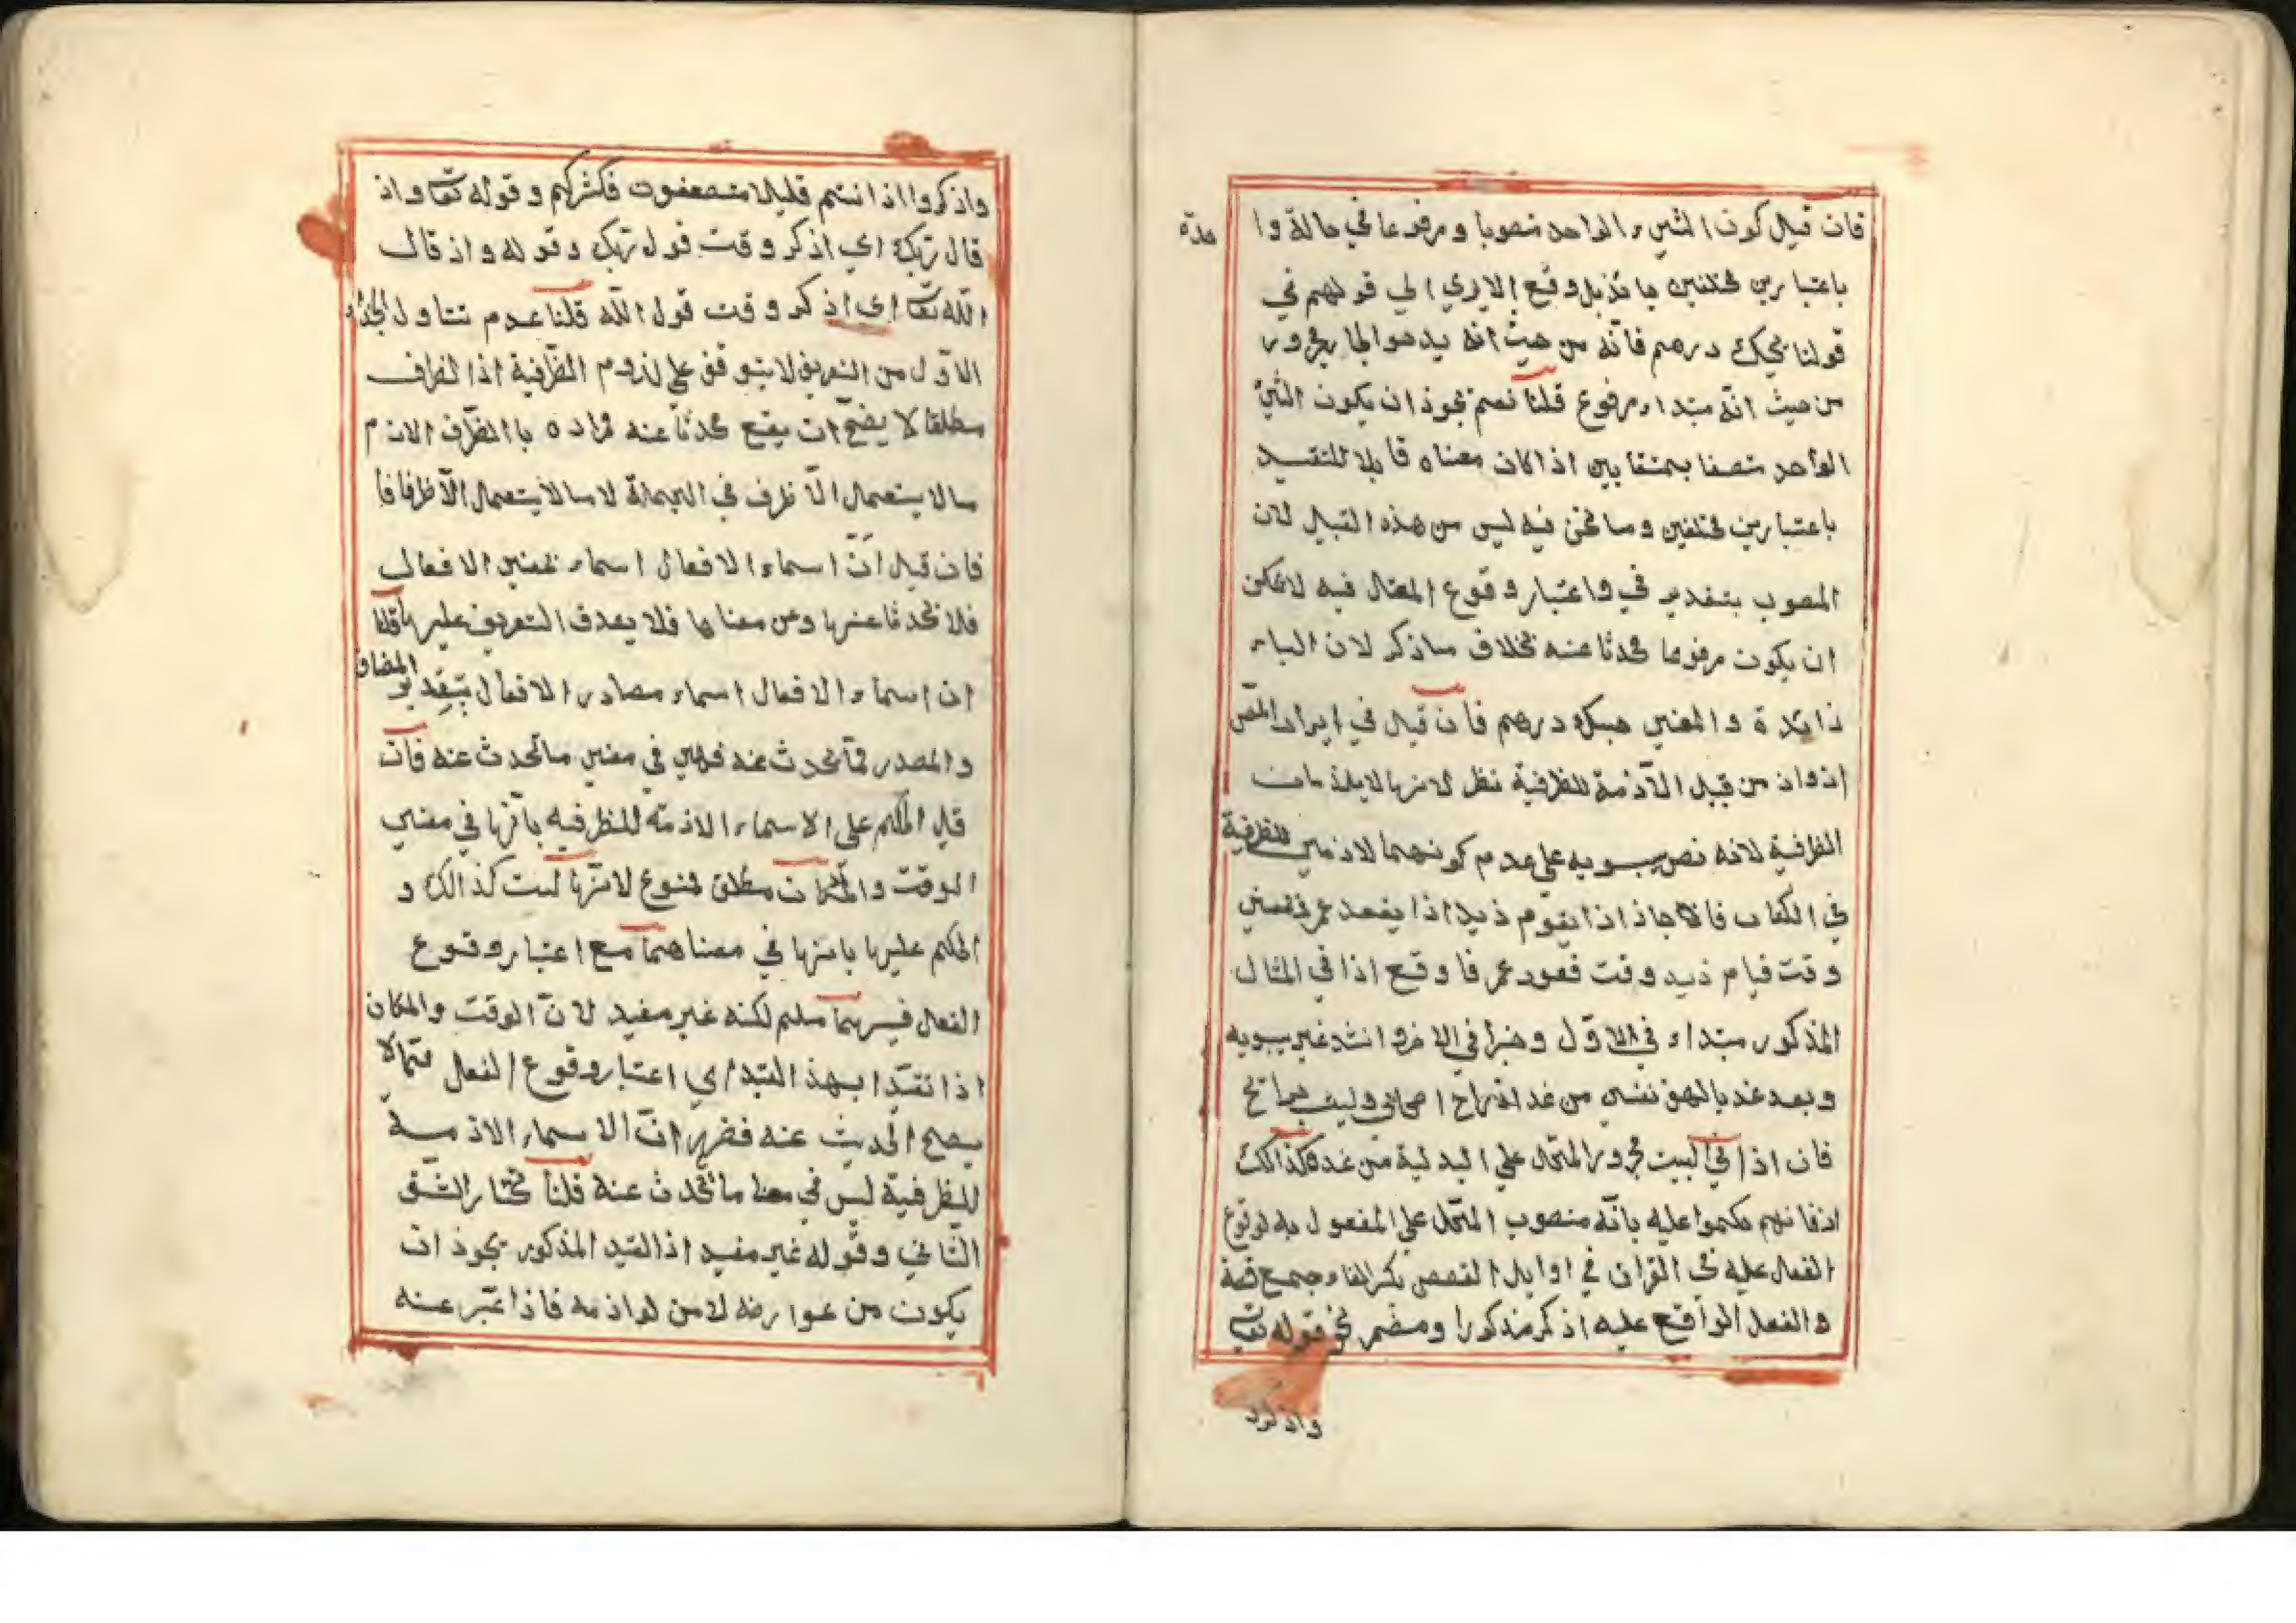 فان قيل كون الشيء الواحد منصوبا ومرفوعا في حالة وا
حدة
باعتبارين مختلفين جائز بل وقع الا يري الي قولهم في
قولنا بحسبك درهم فانه من حيث انه يدهو الجار مجرور
من حيث انه مبتداء مرفوع قلنا نعم يجوز ان يكون الشئ
الواحد متصفا بمتنقابين اذا كان معناه قابلا للتقييد
باعتبارين مختلفين وما نحن فيه ليس من هذه القبيل لان
المصوب بتقدير في واعتبار وقوع الفعال فيه لا يمكن
ان يكون مرفوعا محدثا عنه بخلاف ماذكر لان الباء
زايدة والمعني حسبك درهم فان قيل في ايراد المص
اذ واذ من قبيل الازمة للظرفية نظر لانها لا يلزمان
الظرافية لانه نص سبويه علي عدم كونهما لازمين للظرفية
في الكتاب فانه اجاز اذا يقوم زيد اذا يقعد عمر بمعني
وقت قيام زيد وقت قعود عمر فا وقع اذا في المثال
المذكور مبتداء في الاول وخبرا في الاخر وانشد غير سبويه
وبعد غد يالهف نفسي من غد اذا راح اصحابي وليت برايح
فان اذا في البيت مجرور المحل علي البدلية من غد وكذالك
اذ فانهم حكموا عليه بانه منصوب المحل علي المفعول به لوقوع
الفعال عليه في القران في اوايل القصص بكسر القاف جمع قصة
والفعل الواقع عليه اذكر مذكورا ومضمر نحو قوله تعالي
واذكرو
واذكروا اذ انتم قليلا مستضعفون فكثركم وقوله تعا واذ
قال ربك اي اذكر وقت قول ربك وقوله واذ قال
الله تعا اي اذكر وقت قول الله قلنا عدم تناول الجزء
الاول من التعريف لا يتوقف علي لزوم الظرفية اذ الظراف
مطلقا لا يضح ان يقع محدثا عنه مراده با الظرف الازم
مالا يستعمل الا ظرف في الجملة لا مالا يستعمل الا ظرفا فا
فان قيل ان اسماء الافعال اسماء لمعني الافعال
فلا تحدثا عنها وعن معناها فلا يصدق التعريف عليها قلنا
ان اسماء الافعال اسماء مصادر الافعال بتقدير المضاف
والمصدر مما تحدث عنه فهي في معني ما تحدث عنه فان
قيل الحكم علي الاسماء الازمة للظرفيه بانها في معني
الوقت والمكان مطلق ممنوع لانها ليت كذالك و
الحكم عليها بانها في معناهما مع اعتبار وقوع
الفعل فيهما مسلم لكنه غير مفيد لان الوقت والمكان
اذا تقيدا بهذ القيد اي اعتبار وقوع الفعل ممالا
يصح الحديث عنه فظهر ان الاسماء الازمة
للظرفية ليس في معنا ما تحدث عنه قلنا نختار الشق
الثاني وقوله غير مفيد اذ القيد المذكور يجوز ان
يكون من عوارضه لا من لوازمه فاذا عبر عنه